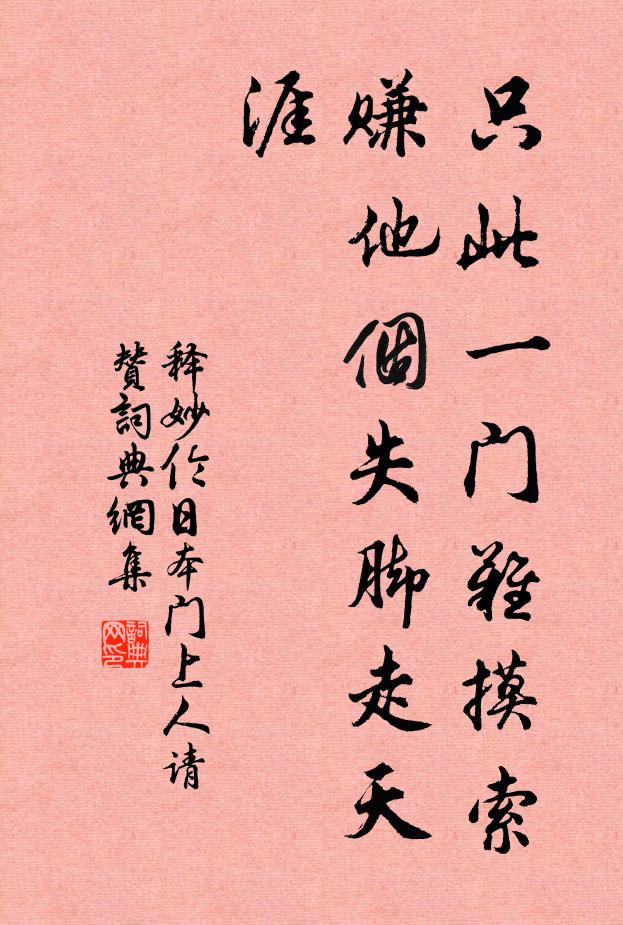 只此一门難摸索
赚他個失脚走天
涯
释妙伦日本门上人请
赞詞典網集
詞典
网印